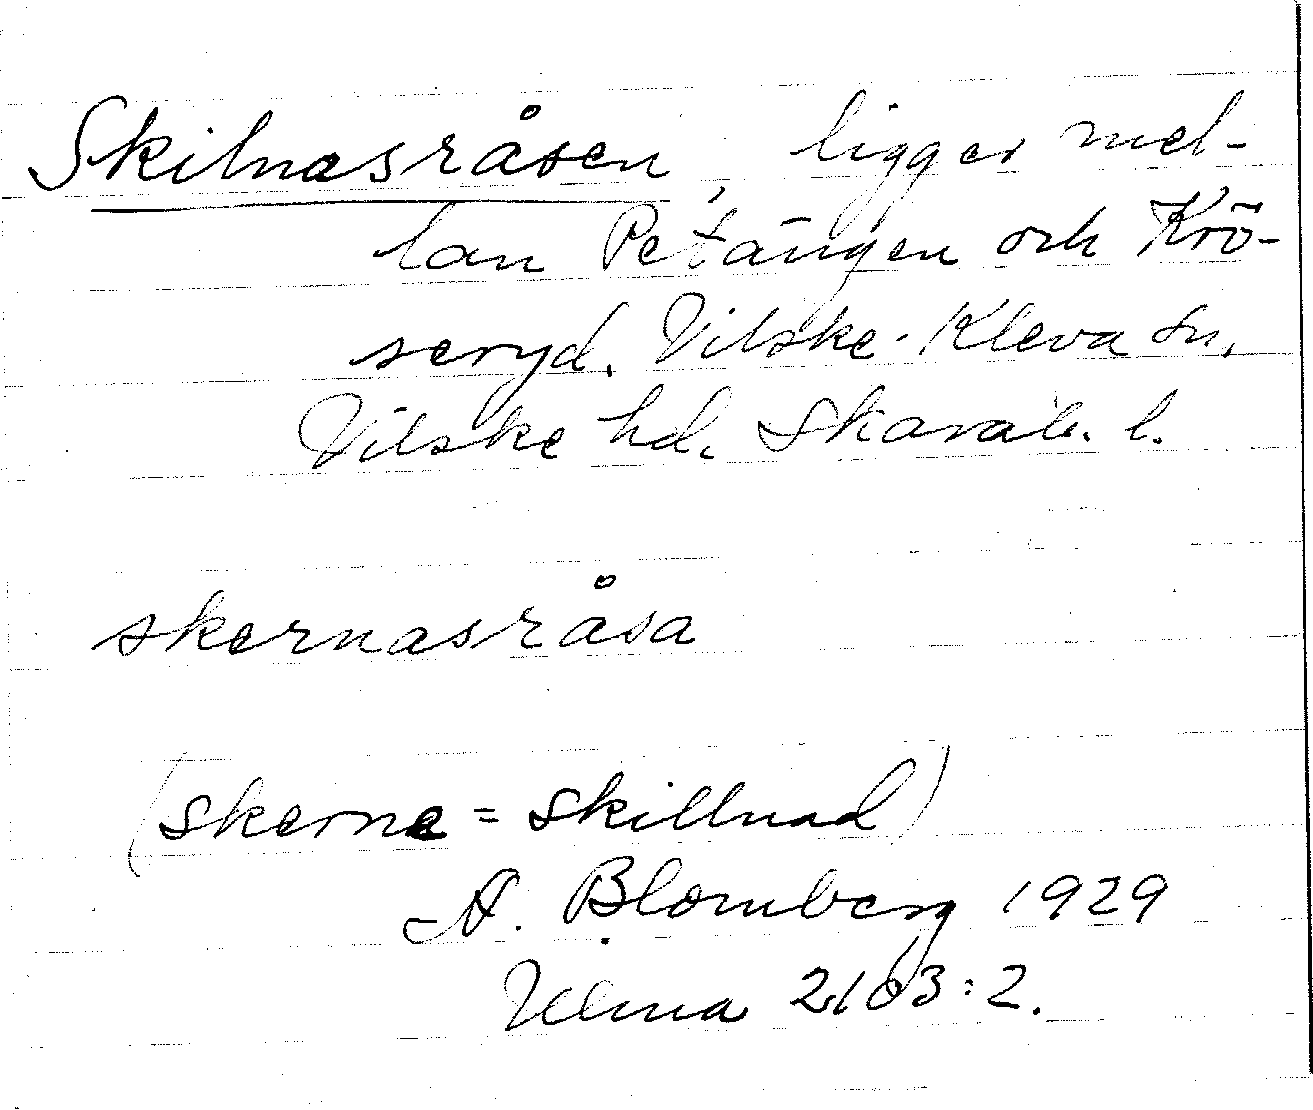 Skilnasråsen, ligger mel-
lan Petängen och Krö-
seryd. Vilske-Kleva sn,
Vilske hd. Skarab. l.
skernasråsa
(skerna = skillnad)
A. Blomberg 1929
Ulma 2103:2.